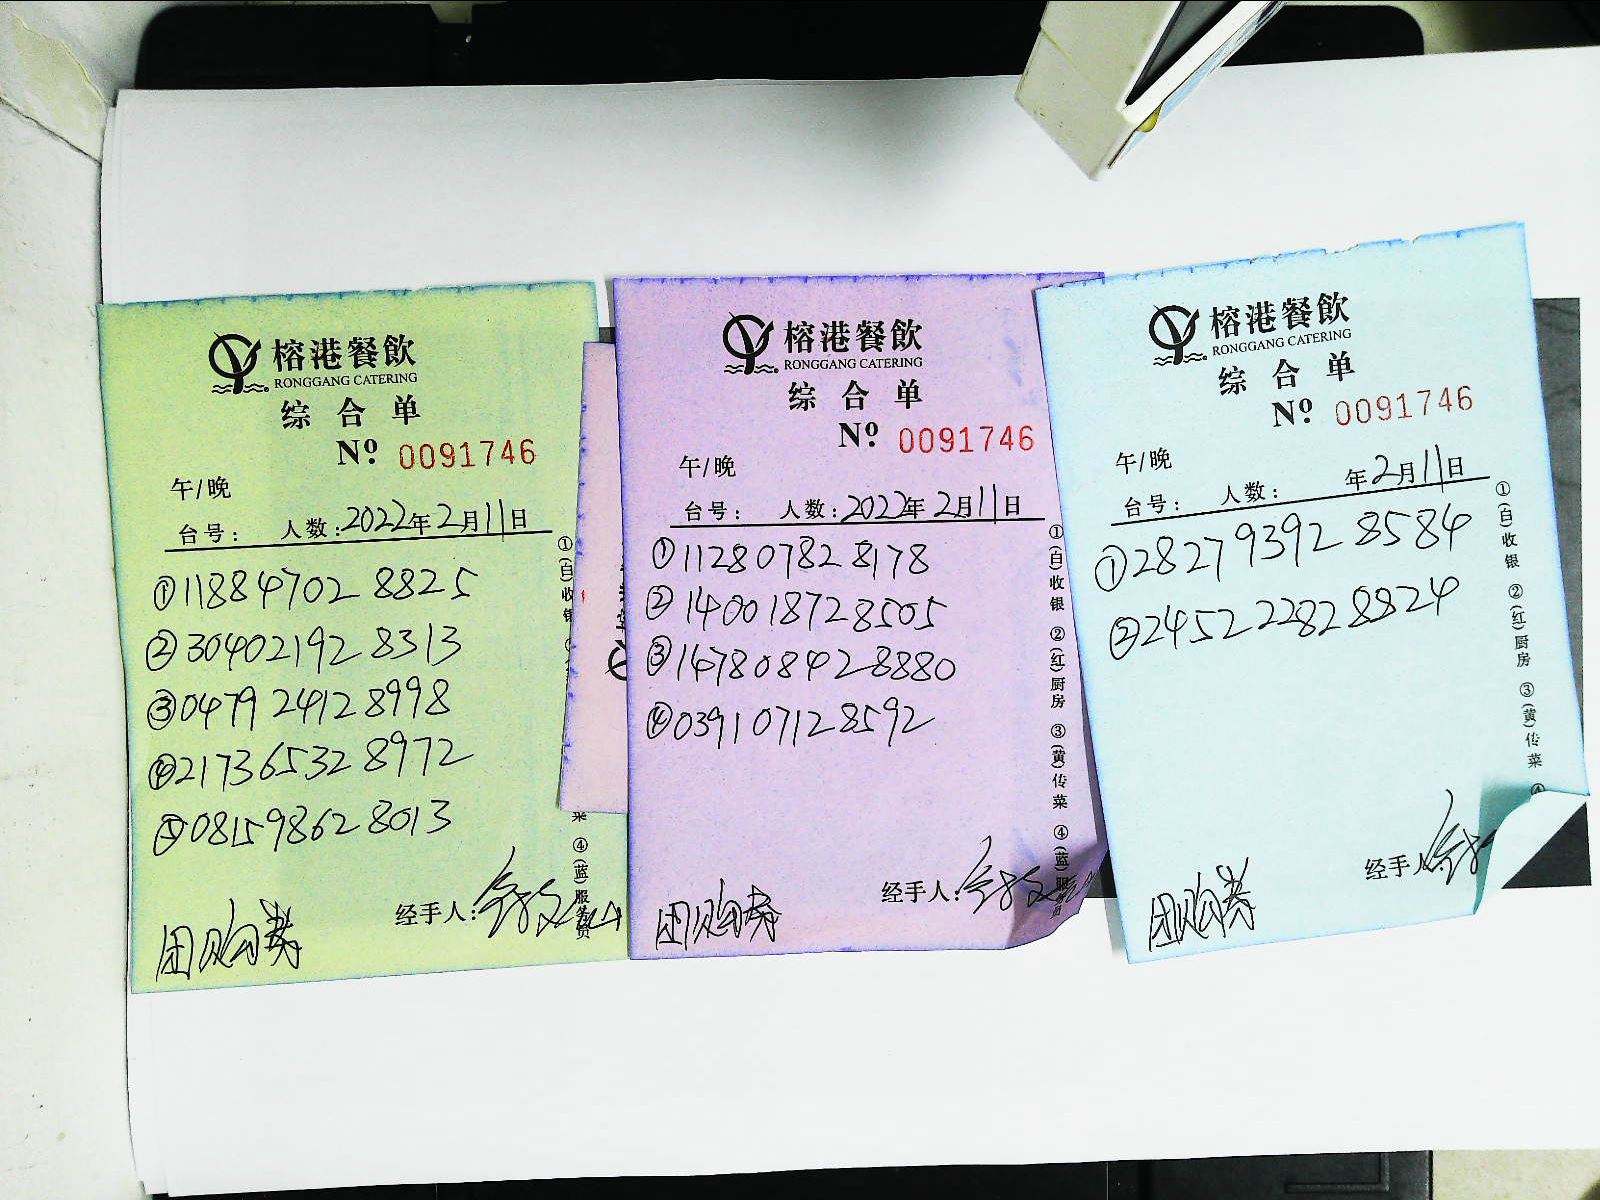 榕港餐飲
RONGGANG CATERING
综合单
Nº 0091746
午/晚
台号： 人数：2022年2月11日
①11884702 8825
②30402192 8313
③0479 2412 8998
④21736532 8972
⑤081598628013
团购券
经手人：
①(白)收银
菜 ④(蓝)服务员
榕港餐飲
RONGGANG CATERING
综合单
Nº 0091746
午/晚
台号： 人数：2022年2月11日
①112807828178
②140018728505
③147808428880
④039107128592
团购券
经手人：
①(白)收银 ②(红)厨房 ③(黄)传菜 ④(蓝)服务员
榕港餐飲
RONGGANG CATERING
综合单
Nº 0091746
午/晚
台号： 人数： 年2月11日
①28279392 8584
②245222828824
团购券
经手人
①(白)收银 ②(红)厨房 ③(黄)传菜 ④